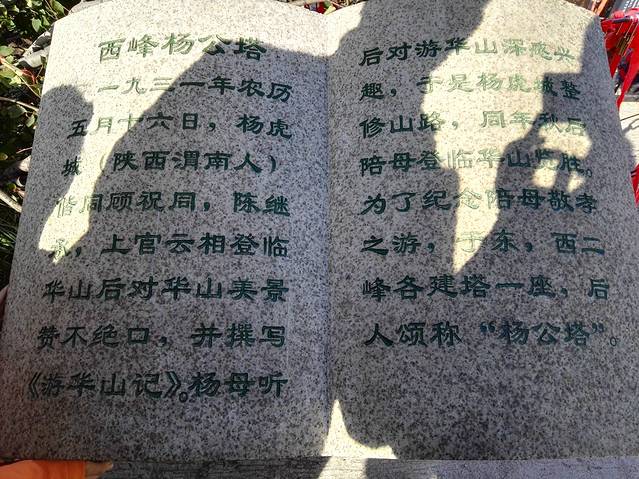 西峰杨公塔
一九三一年农历
五月十六日，杨虎
城（陕西渭南人）
偕同顾祝同，陈继
承，上官云相登临
华山后对华山美景
赞不绝口，并撰写
《游华山记》。杨母听
后对游华山深感兴
趣，于是杨虎城整
修山路，同年秋后
陪母登临华山览胜。
为了纪念陪母敬孝
之游，于东，西二
峰各建塔一座，后
人颂称“杨公塔”。